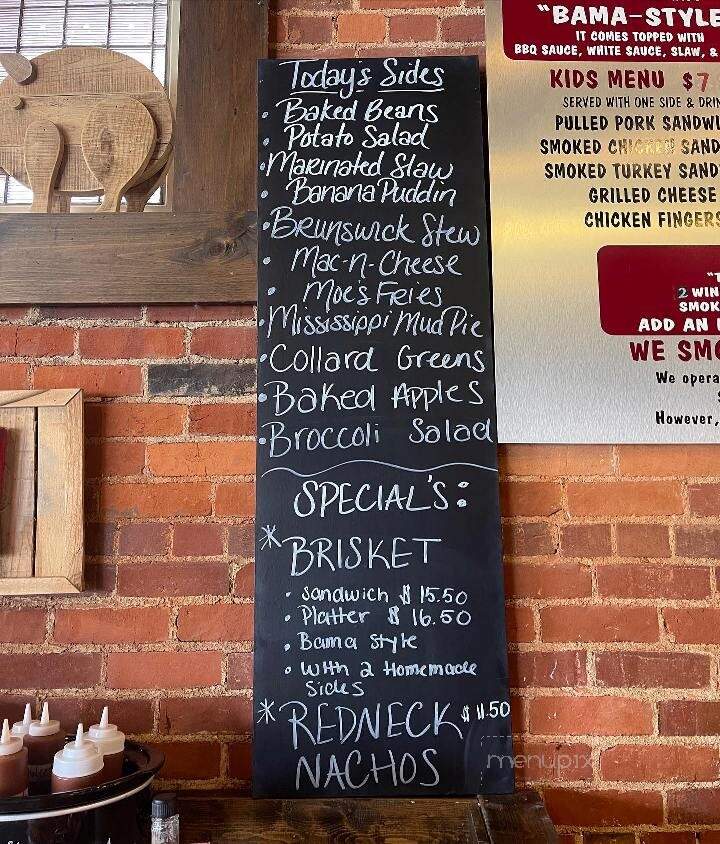 Today's Sides
• Baked Beans
• Potato Salad
• Marinated Slaw
• Banana Puddin
• Brunswick Stew
• Mac-n-Cheese
• Moe's Fries
• Mississippi Mud Pie
• Collard Greens
• Baked Apples
• Broccoli Salad
SPECIAL'S:
* BRISKET
• Sandwich $ 15.50
• Platter $ 16.50
• Bama Style
• With 2 Homemade
Sides
* REDNECK $ 11.50
NACHOS
"BAMA-STYLE
IT COMES TOPPED WITH
BBQ SAUCE, WHITE SAUCE, SLAW, &
KIDS MENU $7
SERVED WITH ONE SIDE &
PULLED PORK
SMOKED CHICKEN
SMOKED TURKEY
GRILLED CHEESE
CHICKEN FINGERS
2
ADD AN
WE
We
However,
menupix